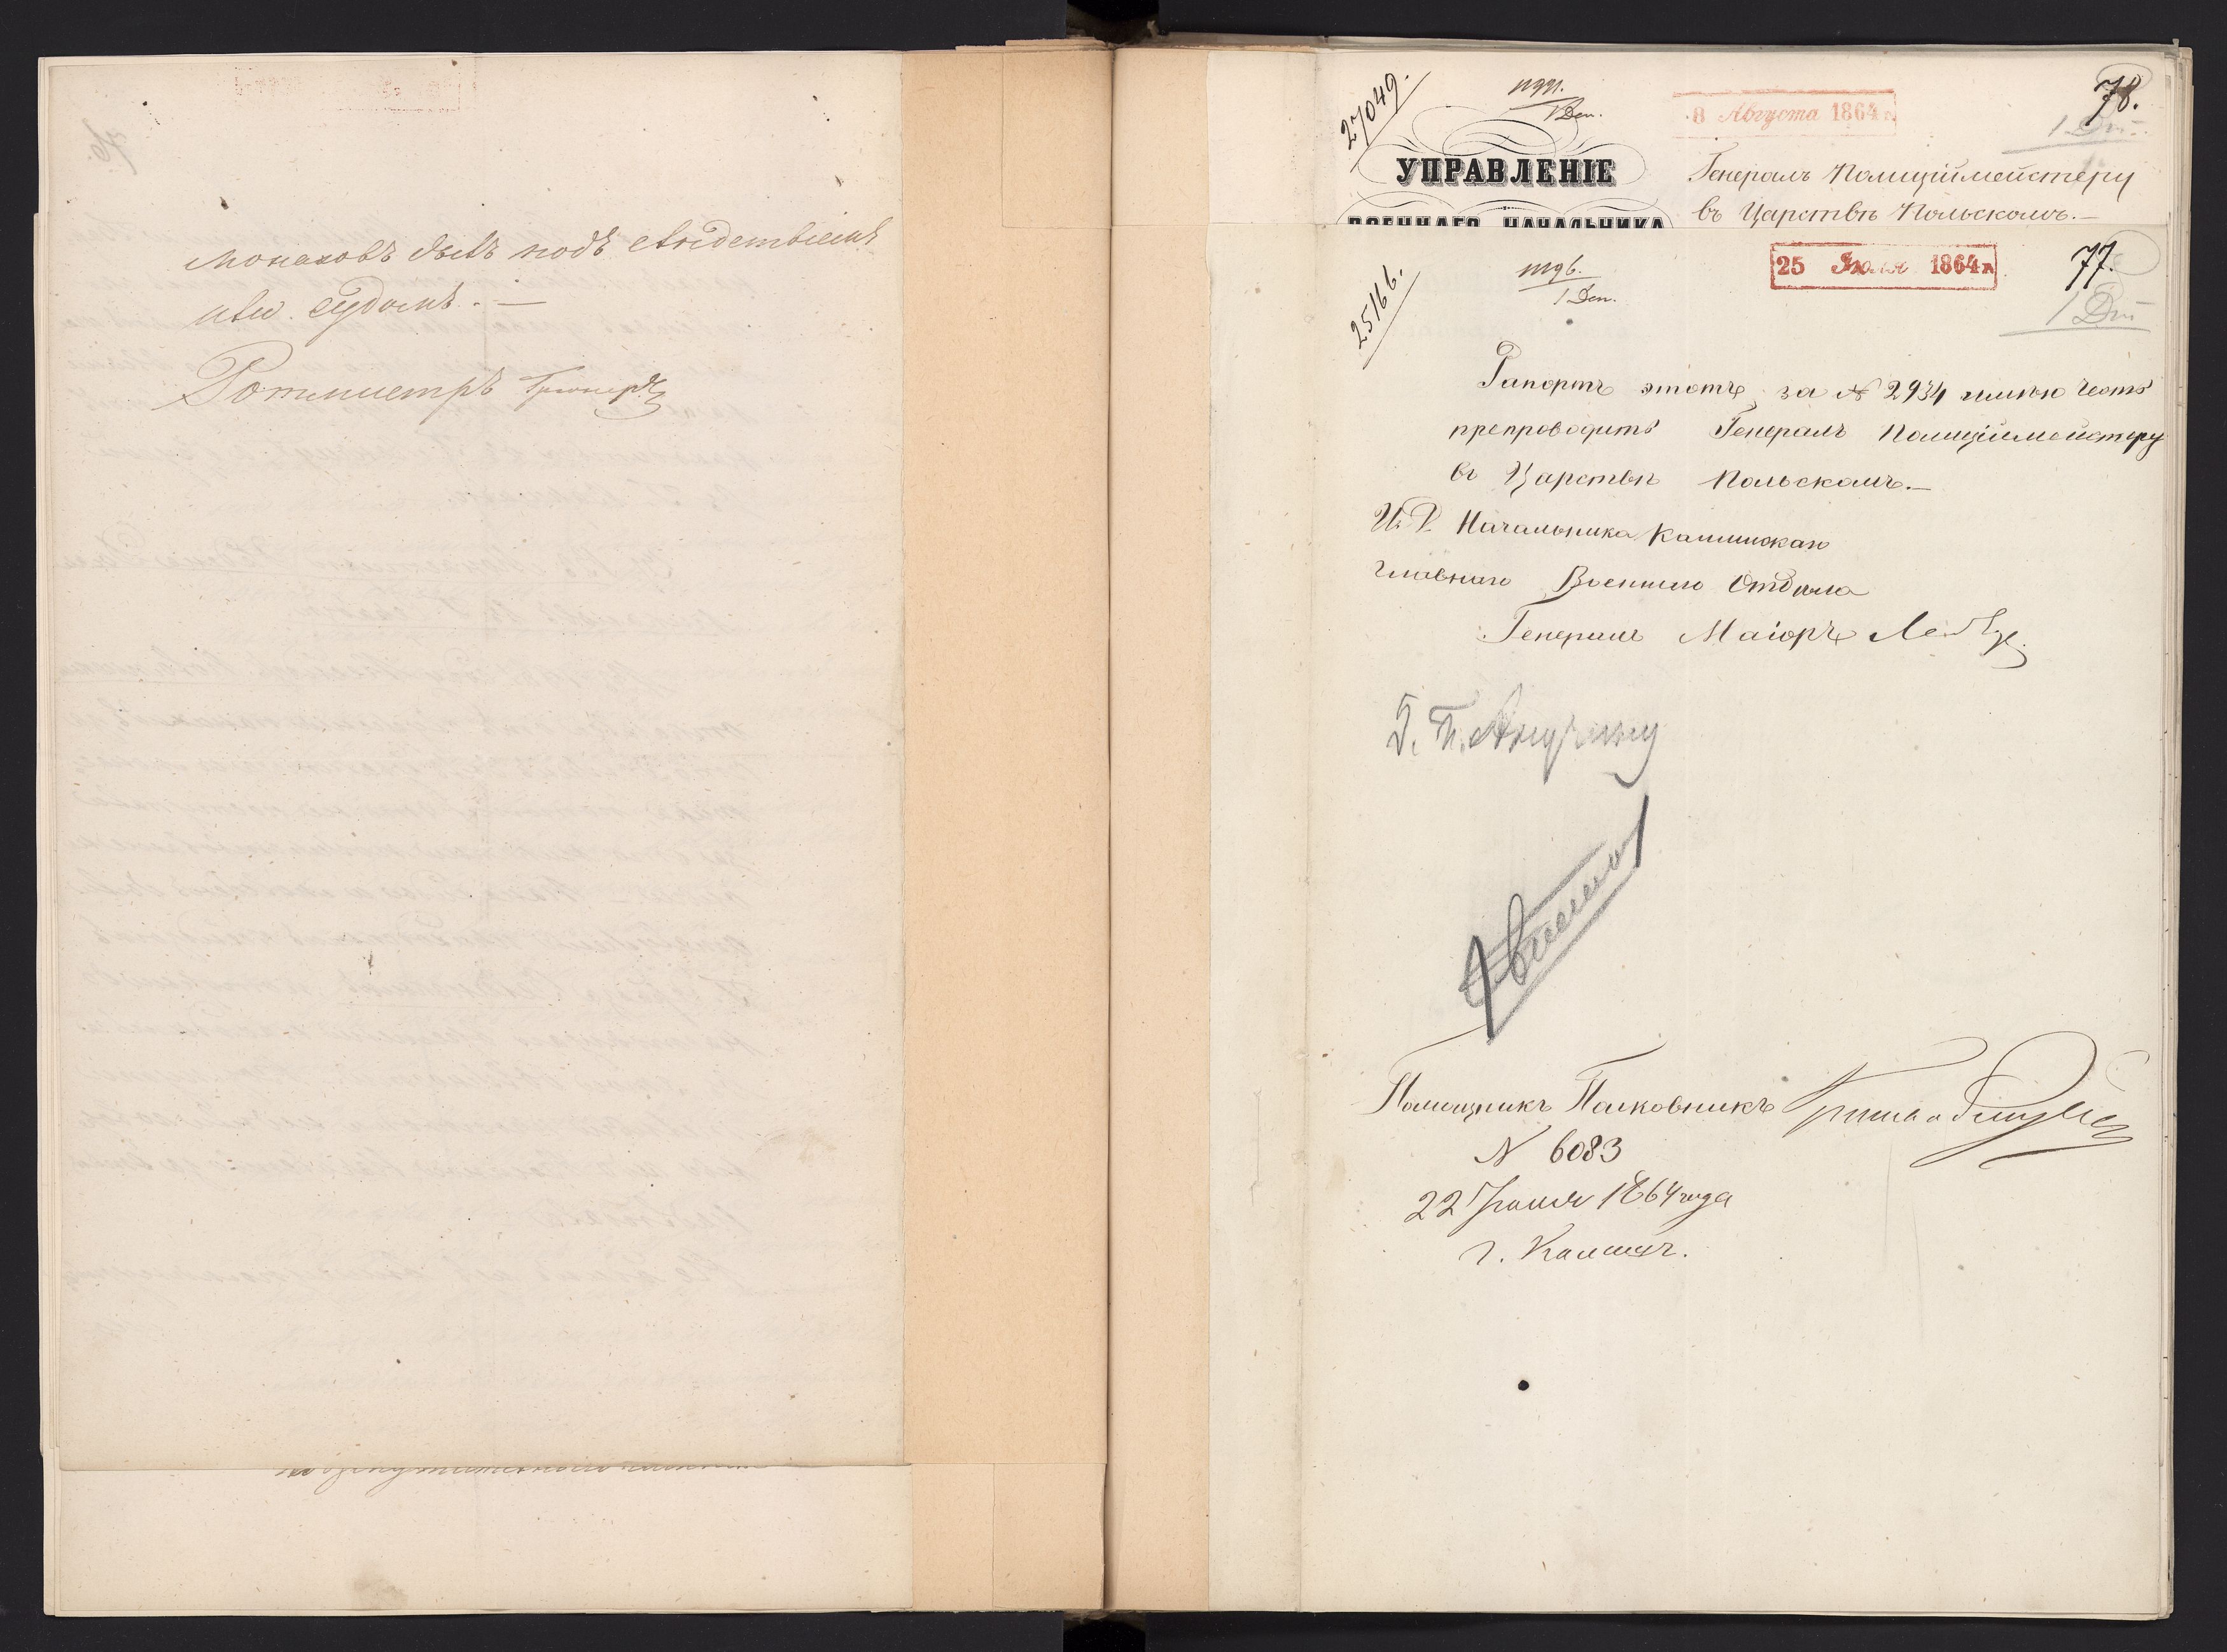 монаховъ былъ подъ слѣдствіемъ
или судомъ. —
Ротмистръ
27049.
1 Деп.
8 Августа 1864 г.
78.
УПРАВЛЕНІЕ
ВОЕННАГО НАЧАЛЬНИКА
Генералъ Полиціймейстеру
въ Царствѣ Польскомъ. —
25166.
1 Деп.
25 Іюля 1864 г.
77.
Рапортъ этотъ за № 2934 имѣю честь
препроводить Генералъ Полиціймейстеру
въ Царствѣ Польскомъ. —
И. Д. Начальника Калишскаго
Главнаго Военнаго Отдѣла
Генералъ Маіоръ
Помощникъ Полковникъ
N 6083
22 Іюля 1864 года
г. Калишъ.